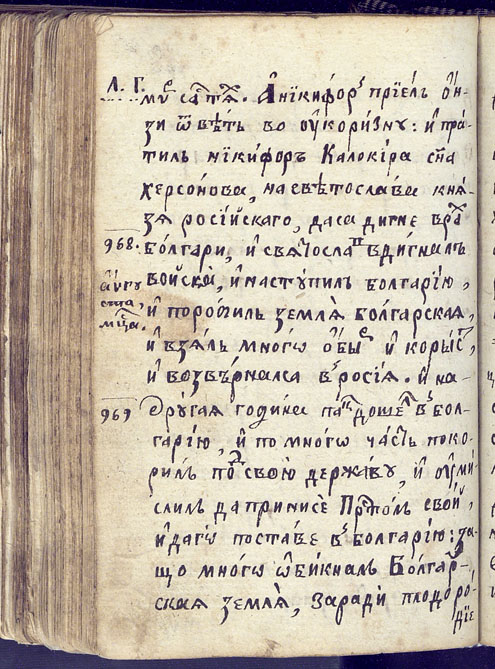 Л. Г.
му са пх҃. А нїкифорꙿ прїелъ ѡ́н-
зи ѿвѣтъ во оукоризну: и пра-
тилъ нїкифоръ Калокира сн҃а
херсонова, на свѣтослава кня-
зя російскаго, да са дигне вра
968. болгари, и святославъ вдигналъ
авгу войска, и наступилъ болгарїю,
ста, и поробилъ земля болгарская,
мцⷭ҇а. и взялъ многѡ ѡбы и корысⷮ,
и возвѣрнался вꙿ росїя. и на-
969 другая година пакъ дошелъ вꙿ бол-
гарїю, и по многѡ часть поко-
рилъ поⷣ свою державу, и оуми-
слилъ да принисе Прⷭ҇толъ свой,
и да гѡ поставе вꙿ болгарїю: за-
що многѡ ѡбикналъ Болгар-
ская земля, заради плодоро-
дїе